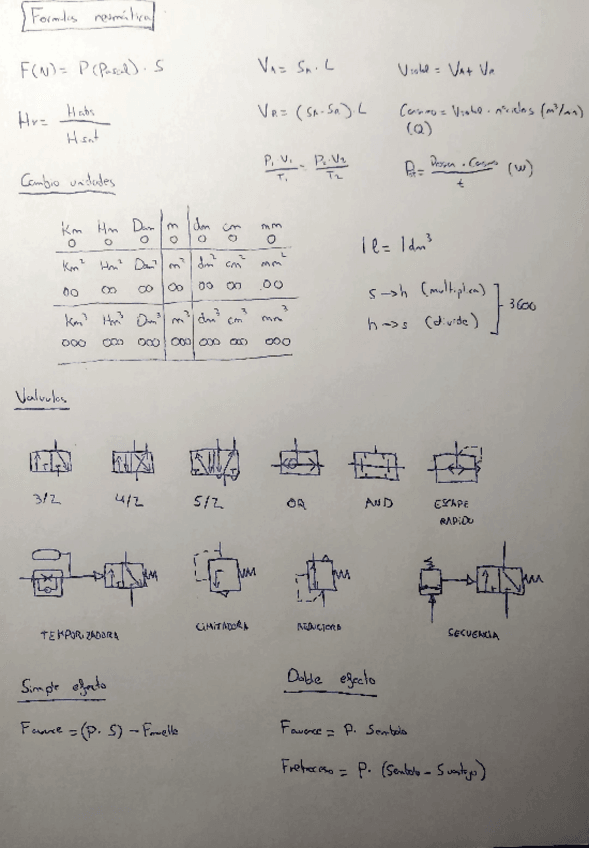 Formulas neumática
F(N) = P(Pascal) · S
VA = SA · L
Vtotal = VA + VR
Hr = Habs / Hsat
VR = (SA - SR) · L
Consumo = Vtotal · nºciclos (m³/min)
(Q)
P1 · V1 / T1 = P2 · V2 / T2
Pot = Presion · Consumo / t (W)
Cambio unidades
Km Hm Dam m dm cm mm
0 0 0 0 0 0 0
Km² Hm² Dam² m² dm² cm² mm²
00 00 00 00 00 00 00
Km³ Hm³ Dm³ m³ dm³ cm³ mm³
000 000 000 000 000 000 000
1 l = 1 dm³
s → h (multiplica)
h → s (divide)
3600
Valvulas
3/2 4/2 5/2 OR AND ESCAPE
RAPIDO
TEMPORIZADORA LIMITADORA REDUCTORA SECUENCIA
Simple efecto
Favance = (P · S) - Fmuelle
Doble efecto
Favance = P · Sembolo
Fretroceso = P · (Sembolo - Svastago)